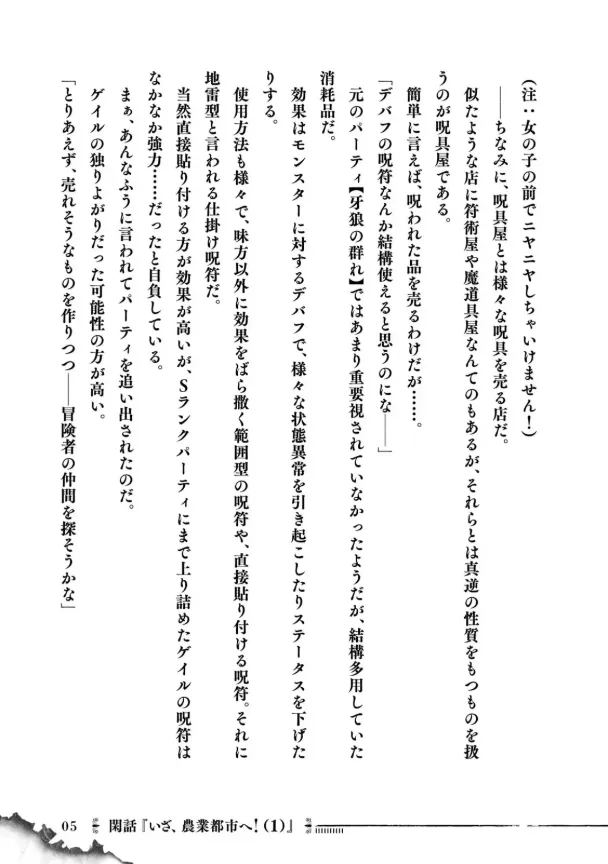 (注：女の子の前でニヤニヤしちゃいけません！)
――ちなみに、呪具屋とは様々な呪具を売る店だ。
似たような店に符術屋や魔道具屋なんてのもあるが、それらとは真逆の性質をもつものを扱
うのが呪具屋である。
簡単に言えば、呪われた品を売るわけだが……。
「デバフの呪符なんか結構使えると思うのにな――」
元のパーティ【牙狼の群れ】ではあまり重要視されていなかったようだが、結構多用していた
消耗品だ。
効果はモンスターに対するデバフで、様々な状態異常を引き起こしたりステータスを下げた
りする。
使用方法も様々で、味方以外に効果をばら撒く範囲型の呪符や、直接貼り付ける呪符。それに
地雷型と言われる仕掛け呪符だ。
当然直接貼り付ける方が効果が高いが、Sランクパーティにまで上り詰めたゲイルの呪符は
なかなか強力……だったと自負している。
まぁ、あんなふうに言われてパーティを追い出されたのだ。
ゲイルの独りよがりだった可能性の方が高い。
「とりあえず、売れそうなものを作りつつ――冒険者の仲間を探そうかな」
05 閑話『いざ、農業都市へ！(1)』